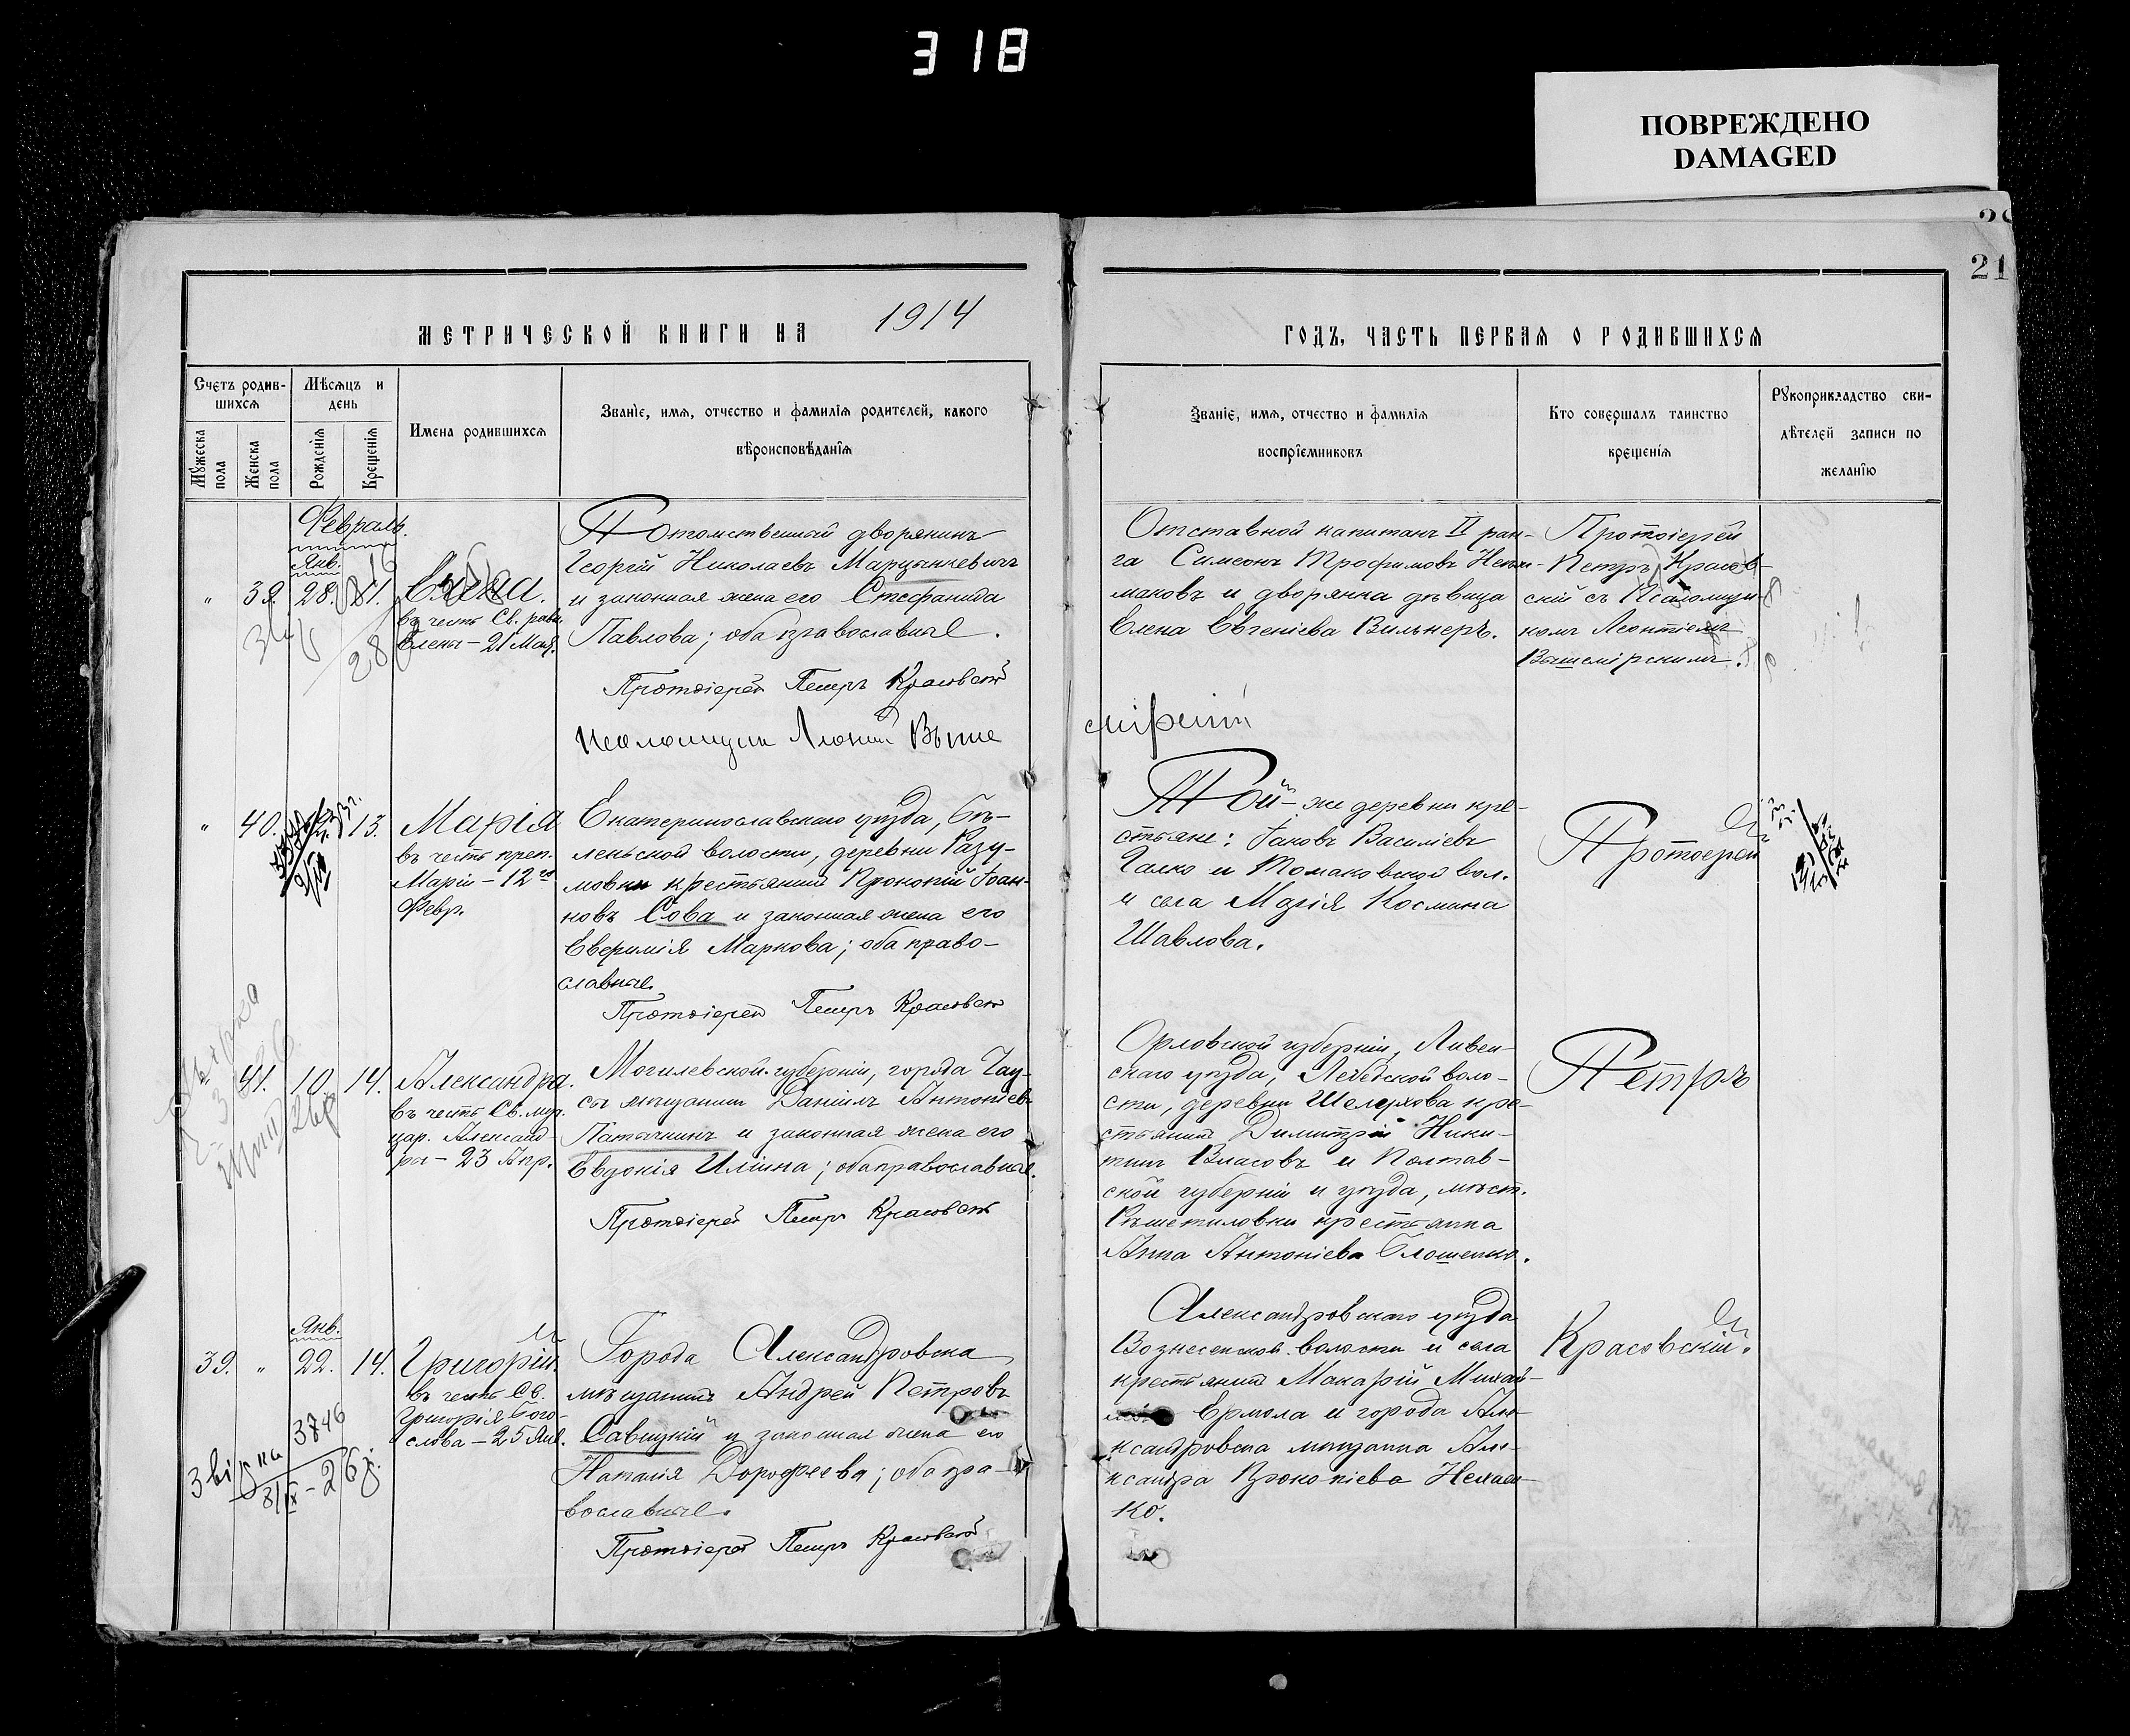 318
ПОВРЕЖДЕНО
DAMAGED
21
МЕТРИЧЕСКОЙ КНИГИ НА 1914
ГОДЪ, ЧАСТЬ ПЕРВАЯ О РОДИВШИХСЯ
Счетъ родив-
шихся
Мужеска
пола
Женска
пола
Мѣсяцъ и
день
Рожденія
Крещенія
Имена родившихся
Званіе, имя, отчество и фамилія родителей, какого
вѣроисповѣданія
Званіе, имя, отчество и фамилія
воспріемниковъ
Кто совершалъ таинство
крещенія
Рукоприкладство сви-
дѣтелей записи по
желанію
Февраль.
Янв.
" 39. 28.
Елена.
въ честь Св. равн.
Елены – 21 Мая.
Потомственный дворянинъ
Георгій Николаевъ Марцынкевичъ
и законная жена его Стефанида
Павлова; оба православные.
Протоіерей Петръ Красовскій
Псаломщикъ Леонтій Выше
Отставной капитанъ II ран-
га Симеонъ Трофимовъ
маковъ и дворянка дѣвица
Елена Евгеніева Вильнеръ.
Протоіерей
Петръ Красов-
скій съ Псаломщи-
комъ Леонтіемъ
Вышемірскимъ.
мірскій
" 40. 13.
Марія
въ честь преп.
Маріи – 12го
Февр.
Екатеринославскаго уѣзда, Бѣ-
леньской волости, деревни Разу-
мовки крестьянинъ Прокопій Іоан-
новъ Сова и законная жена его
Евфимія Маркова; оба право-
славные.
Протоіерей Петръ Красовскій
Той-же деревни кре-
стьяне: Іаковъ Василіевъ
Галко и Томаковской вол.
и села Марія Космина
Шавлова.
Протоерей
41. 10. 14.
Александра.
въ честь Св. муч.
цар. Александ-
ры – 23 Апр.
Могилевской губерніи, города Чау-
сы мѣщанинъ Даніилъ Антоніевъ
Паташкинъ и законная жена его
Евдокія Иліина; оба православные.
Протоіерей Петръ Красовскій
Орловской губерніи, Ливен-
скаго уѣзда, Лебедской воло-
сти, деревни Шелухова кре-
стьянинъ Димитрій Ники-
тинъ Власовъ и Полтав-
ской губерніи и уѣзда, мѣст.
Рѣшетиловки крестьянка
Анна Антоніева
Петръ
Янв.
39. " 22. 14.
Григорій
въ честь Св.
Григорія Бого-
слова – 25 Янв.
3746
Города Александровска
мѣщанинъ Андрей Петровъ
Савицкій и законная жена его
Наталія Дорофеева; оба пра-
вославные.
Протоіерей Петръ Красовскій
Александровскаго уѣзда
Вознесенской волости и села
крестьянинъ Макарій Михай-
Ермола и города Але-
ксандровска мѣщанка Але-
ксандра Прокопіева
ко.
Красовскій.